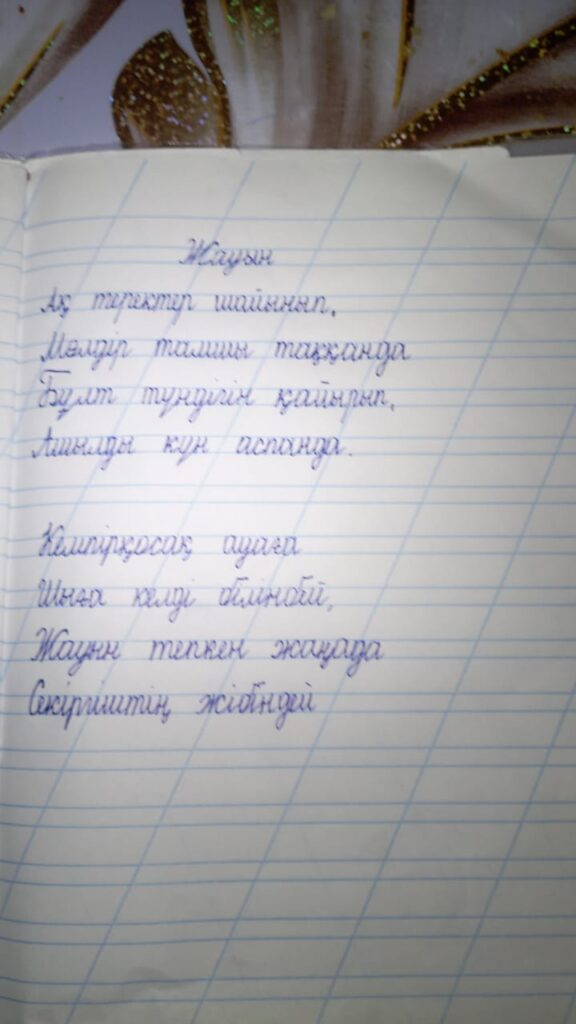 Жауын
Ақ теректер шайынып,
Мөлдір тамшы таққанда
Бұлт түндігін қайырып,
Ашылды күн аспанда.
Кемпірқосақ ауаға
Шыға келді білінбей,
Жауын тепкен жаңада
Секіргіштің жібіндей